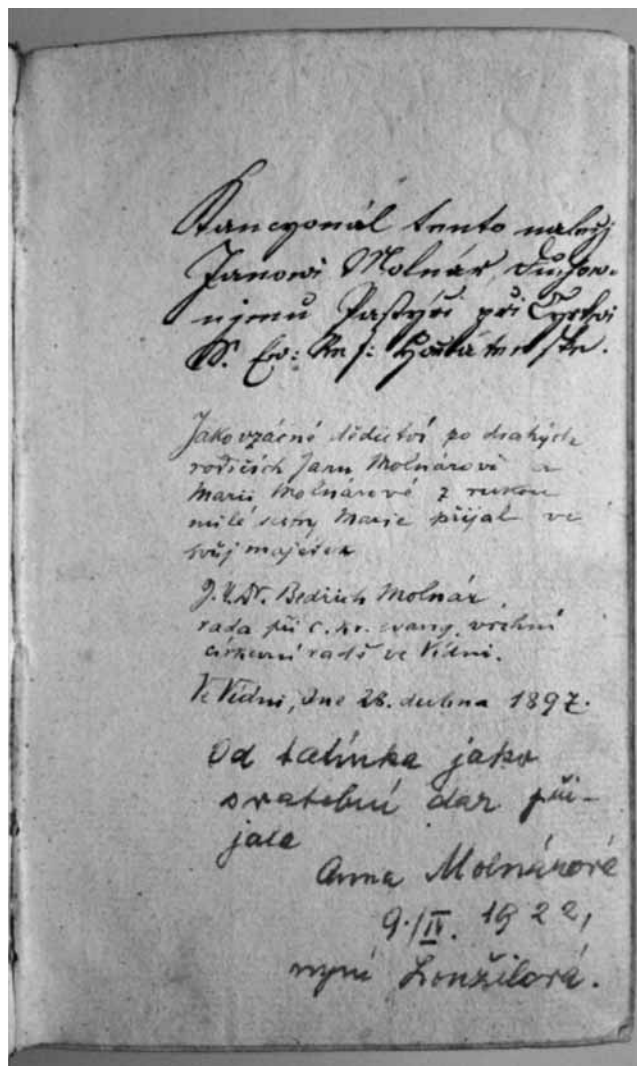 Kancyonál tento naležj
Janowi Molnár, Duchow-
njmu Pastýři při Cyrkwi
Ew: Ref:
Jako vzácné dědictví po drahých
rodičích Janu Molnárovi a
Marii Molnárové z rukou
milé sestry Marie přijal ve
svůj majetek
J.U.Dr. Bedřich Molnár
rada při c. kr. evang. vrchní
církevní radě ve Vídni.
Ve Vídni, dne 28. dubna 1897.
Od tatínka jako
svatební dar při-
jala
Anna Molnárová
9./IV. 1922,
nyní